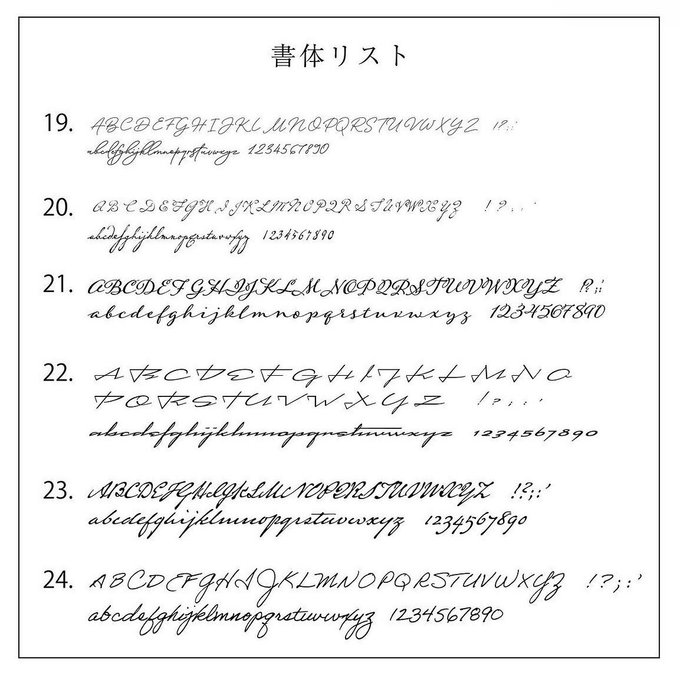 書体リスト
19. ABCDEFGHIJKLMNOPQRSTUVWXYZ !?;:
abcdefghijklmnopqrstuvwxyz 1234567890
20. ABCDEFGHIJKLMNOPQRSTUVWXYZ ! ? . . '
abcdefghijklmnopqrstuvwxyz 1234567890
21. ABCDEFGHIJKLMNOPQRSTUVWXYZ !?;:'
abcdefghijklmnopqrstuvwxyz 1234567890
22. ABCDEFGHIJKLMNO
PQRSTUVWXYZ !?;:'
abcdefghijklmnopqrstuvwxyz 1234567890
23. ABCDEFGHIJKLMNOPQRSTUVWXYZ !?;:'
abcdefghijklmnopqrstuvwxyz 1234567890
24. ABCDEFGHIJKLMNOPQRSTUVWXYZ !?;:'
abcdefghijklmnopqrstuvwxyz 1234567890